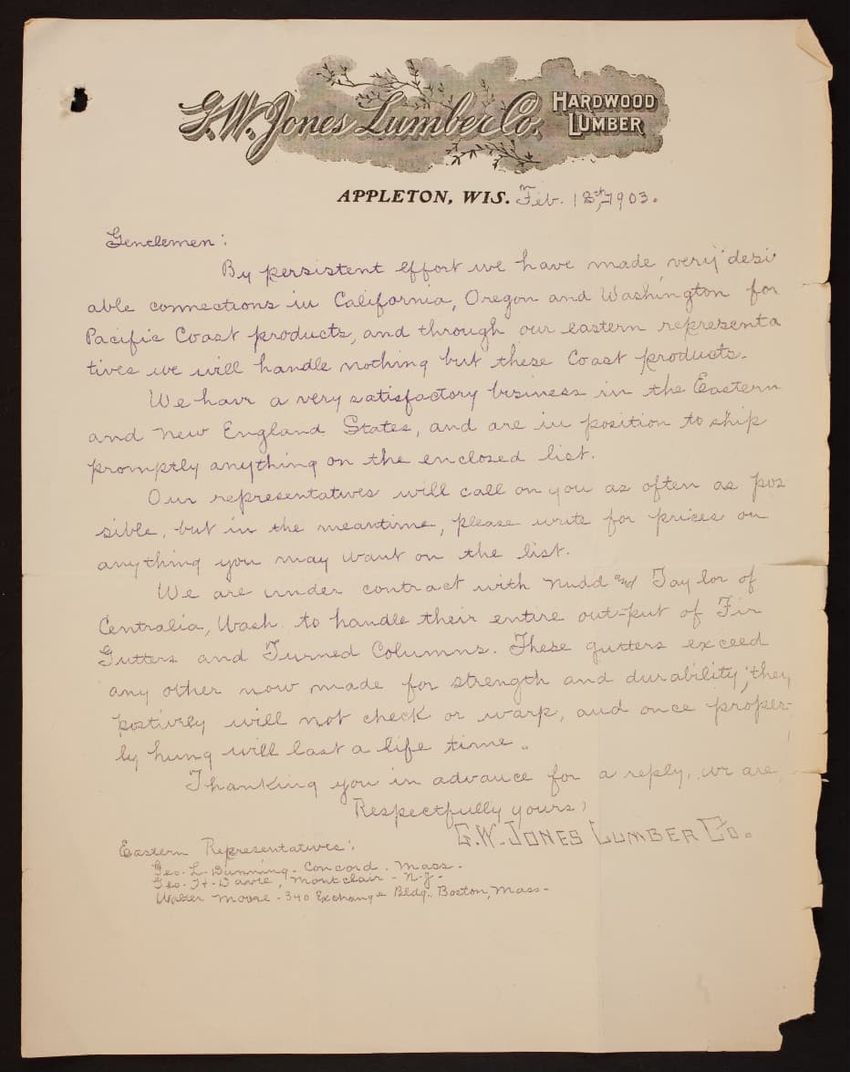 G.W. Jones Lumber Co. HARDWOOD LUMBER
APPLETON, WIS. Feb. 12th, 1903.
Genclemen:
By persistent effort we have made very desi
able connections in California, Oregon and Washington for
Pacific Coast products, and through our eastern representa
tives we will handle nothing but these Coast products.
We have a very satisfactory business in the Eastern
and New England States, and are in position to ship
promptly anything on the enclosed list.
Our representatives will call on you as often as pos
sible, but in the meantime, please write for prices on
anything you may want on the list.
We are under contract with Nudd and Taylor of
Centralia, Wash. to handle their entire out-put of Fir
Gutters and Turned Columns. These gutters exceed
any other now made for strength and durability, they
postively will not check or warp, and once proper-
ly hung will last a life time.
Thanking you in advance for a reply, we are,
Respectfully yours,
G.W. JONES LUMBER CO.
Eastern Representatives:
Geo. L. Dunning - Concord. Mass.
Geo. H. Davie, Montclair - N.J.
Walter Moore - 340 Exchange Bldg. Boston, Mass-